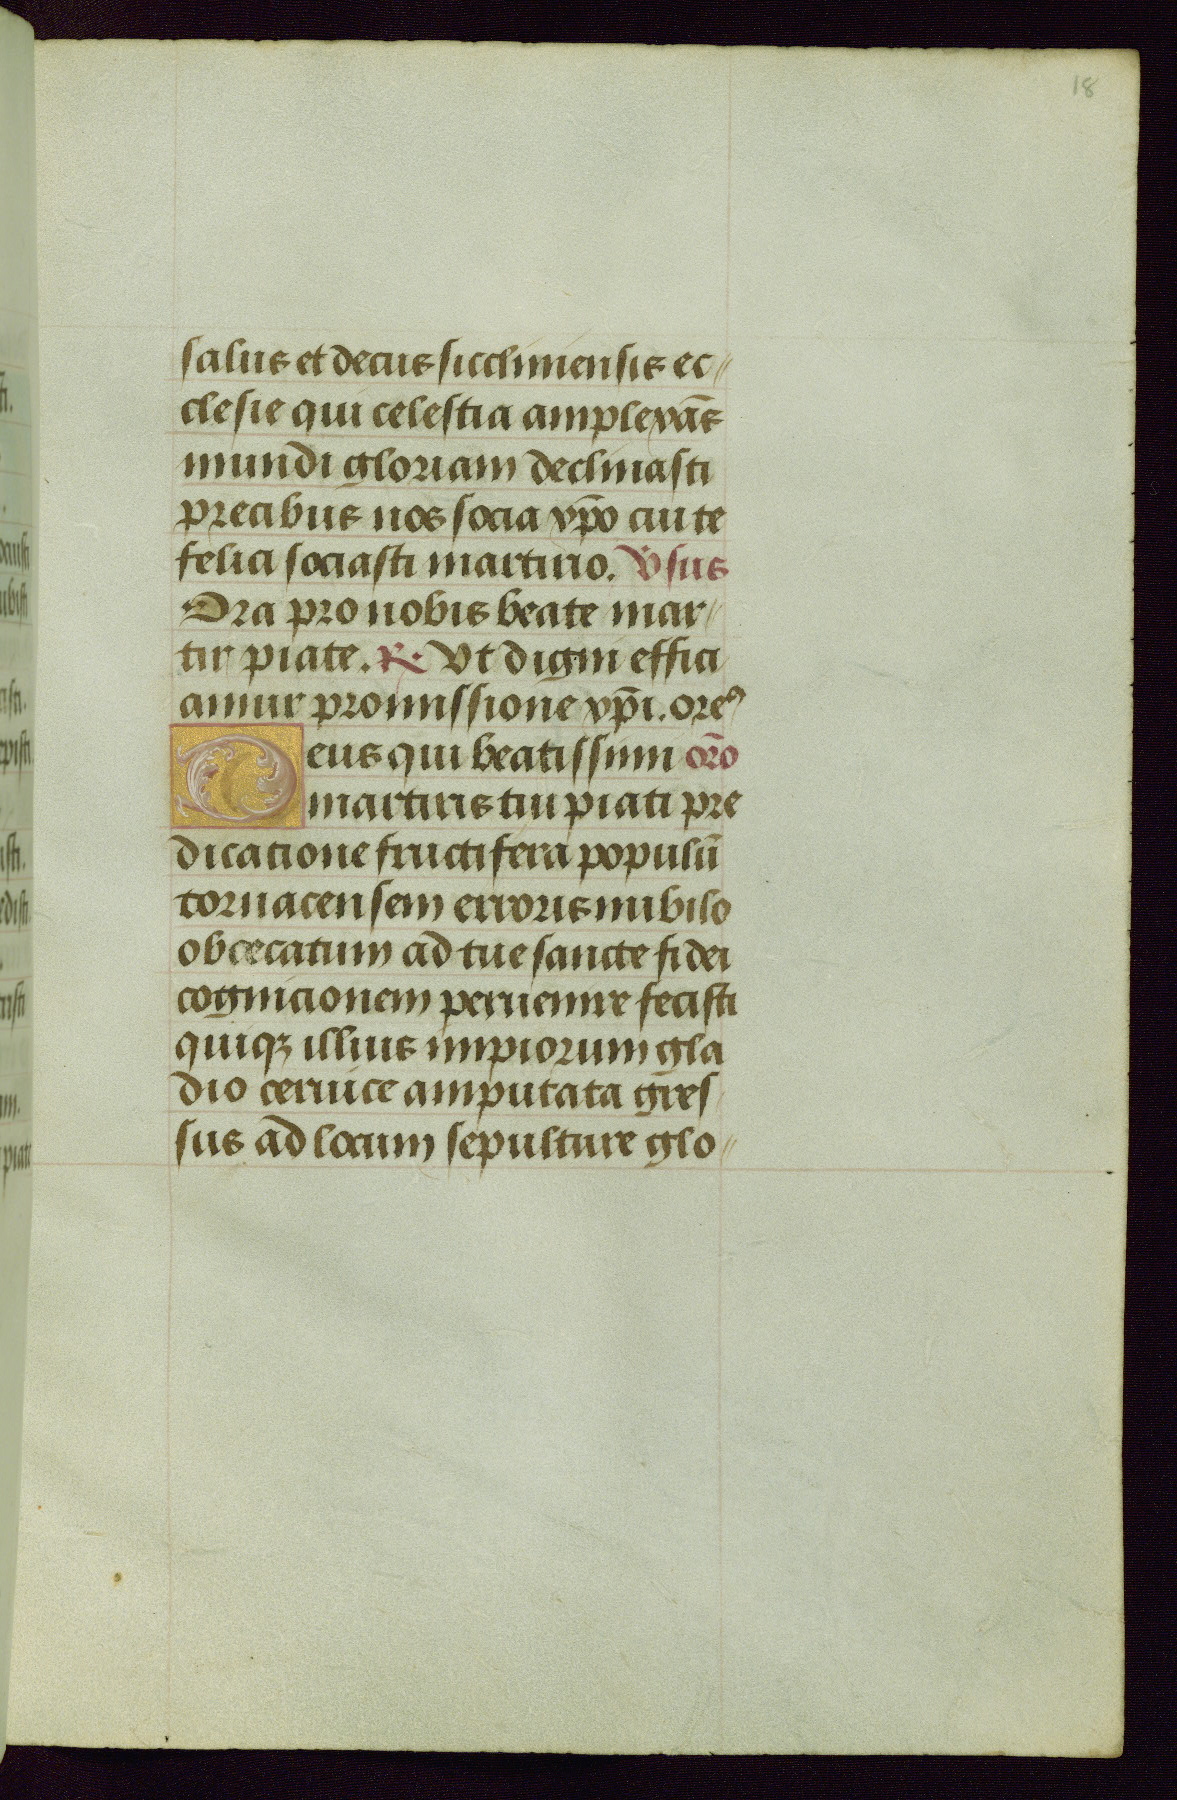 18
salus et decus siccliniensis ec//
clesie qui celestia amplexãs
mundi gloriam declinasti
precibus nos socia xp̃o cui te
felici sociasti martirio. V̇sus
Ora pro nobis beate mar//
tir piate. R. Vt digni effici
amur promissione xp̃i. oreꝰ
Deus qui beatissimi orõ
martiris tui piati pre
dicatione fructifera populũ
tornacensem erroris nubilo
obcecatum ad tue sancte fidei
cognicionem peruenire fecisti
quiqꝫ illius impiorum gla
dio ceruice amputata gres
sus ad locum sepulture glo//